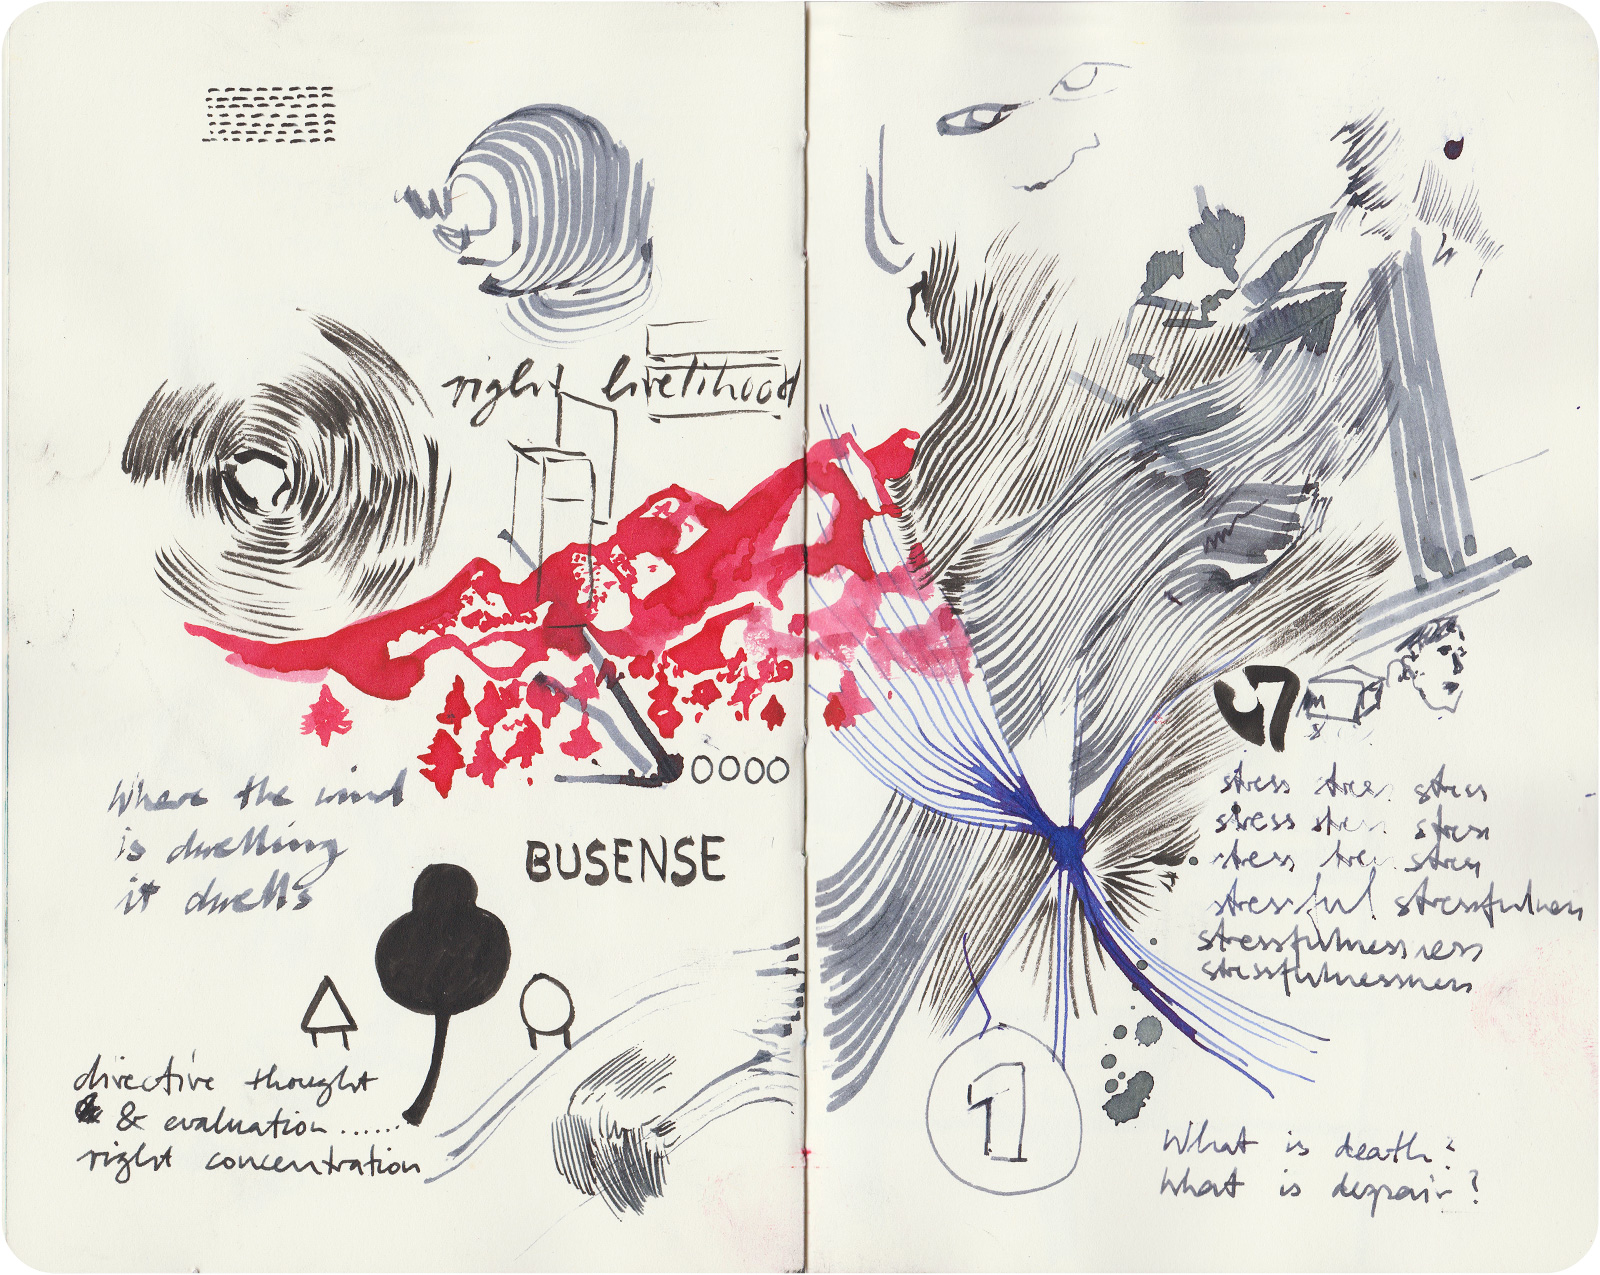 right livelihood
0000
Where the wind
is dwelling
it dwells
BUSENSE
directive thought
& & evaluation......
right concentration
stress stress stress
stress stress stress
stress stress stress
stressful stressfulness
stressfulnessness
stressfulnessness
1
What is death?
What is despair?